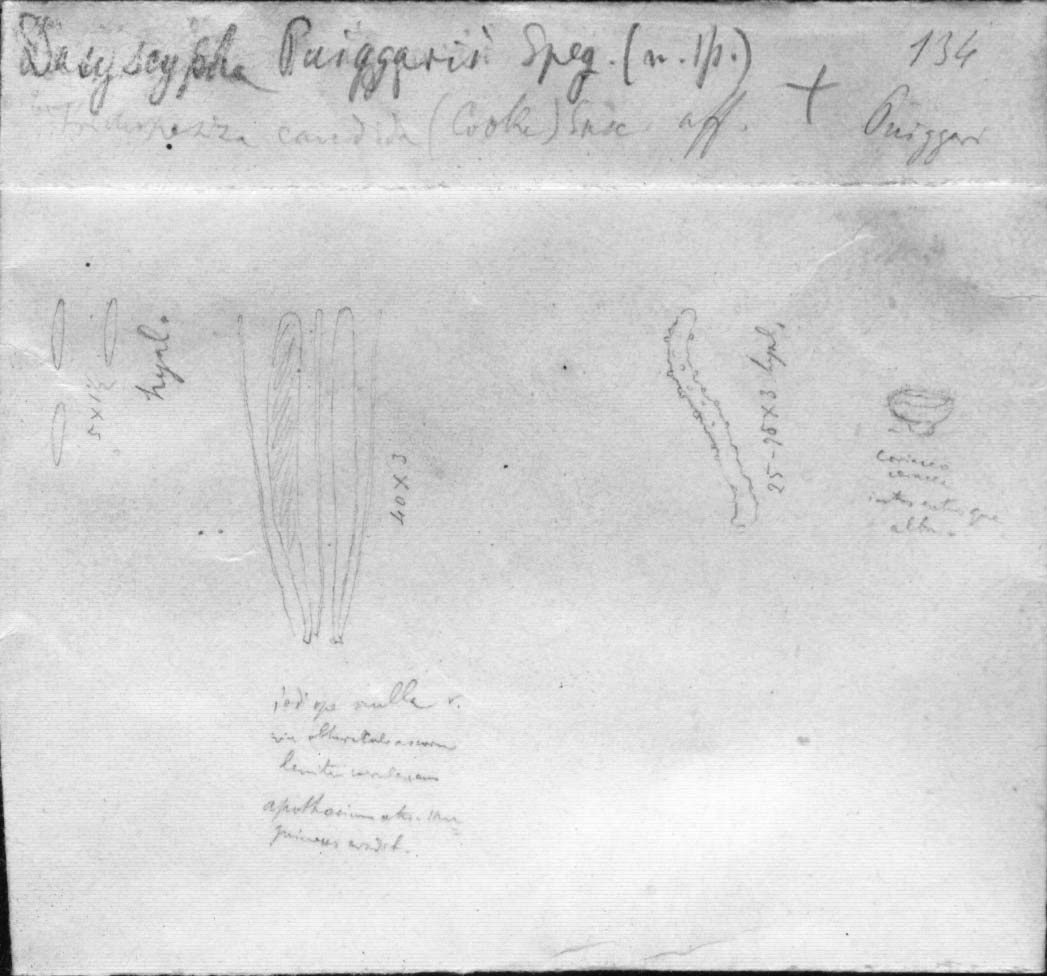 Dasyscypha Puiggarii Speg. (n. sp.) 134
Trichopeziza candida (Cooke) Sacc. aff. + Puiggari
5 X 1½
hyal.
40 X 3
25-28X3 hyal.
coriaceo
intus extusque
alba.
iod ope nulla v.
leniter
apothecium